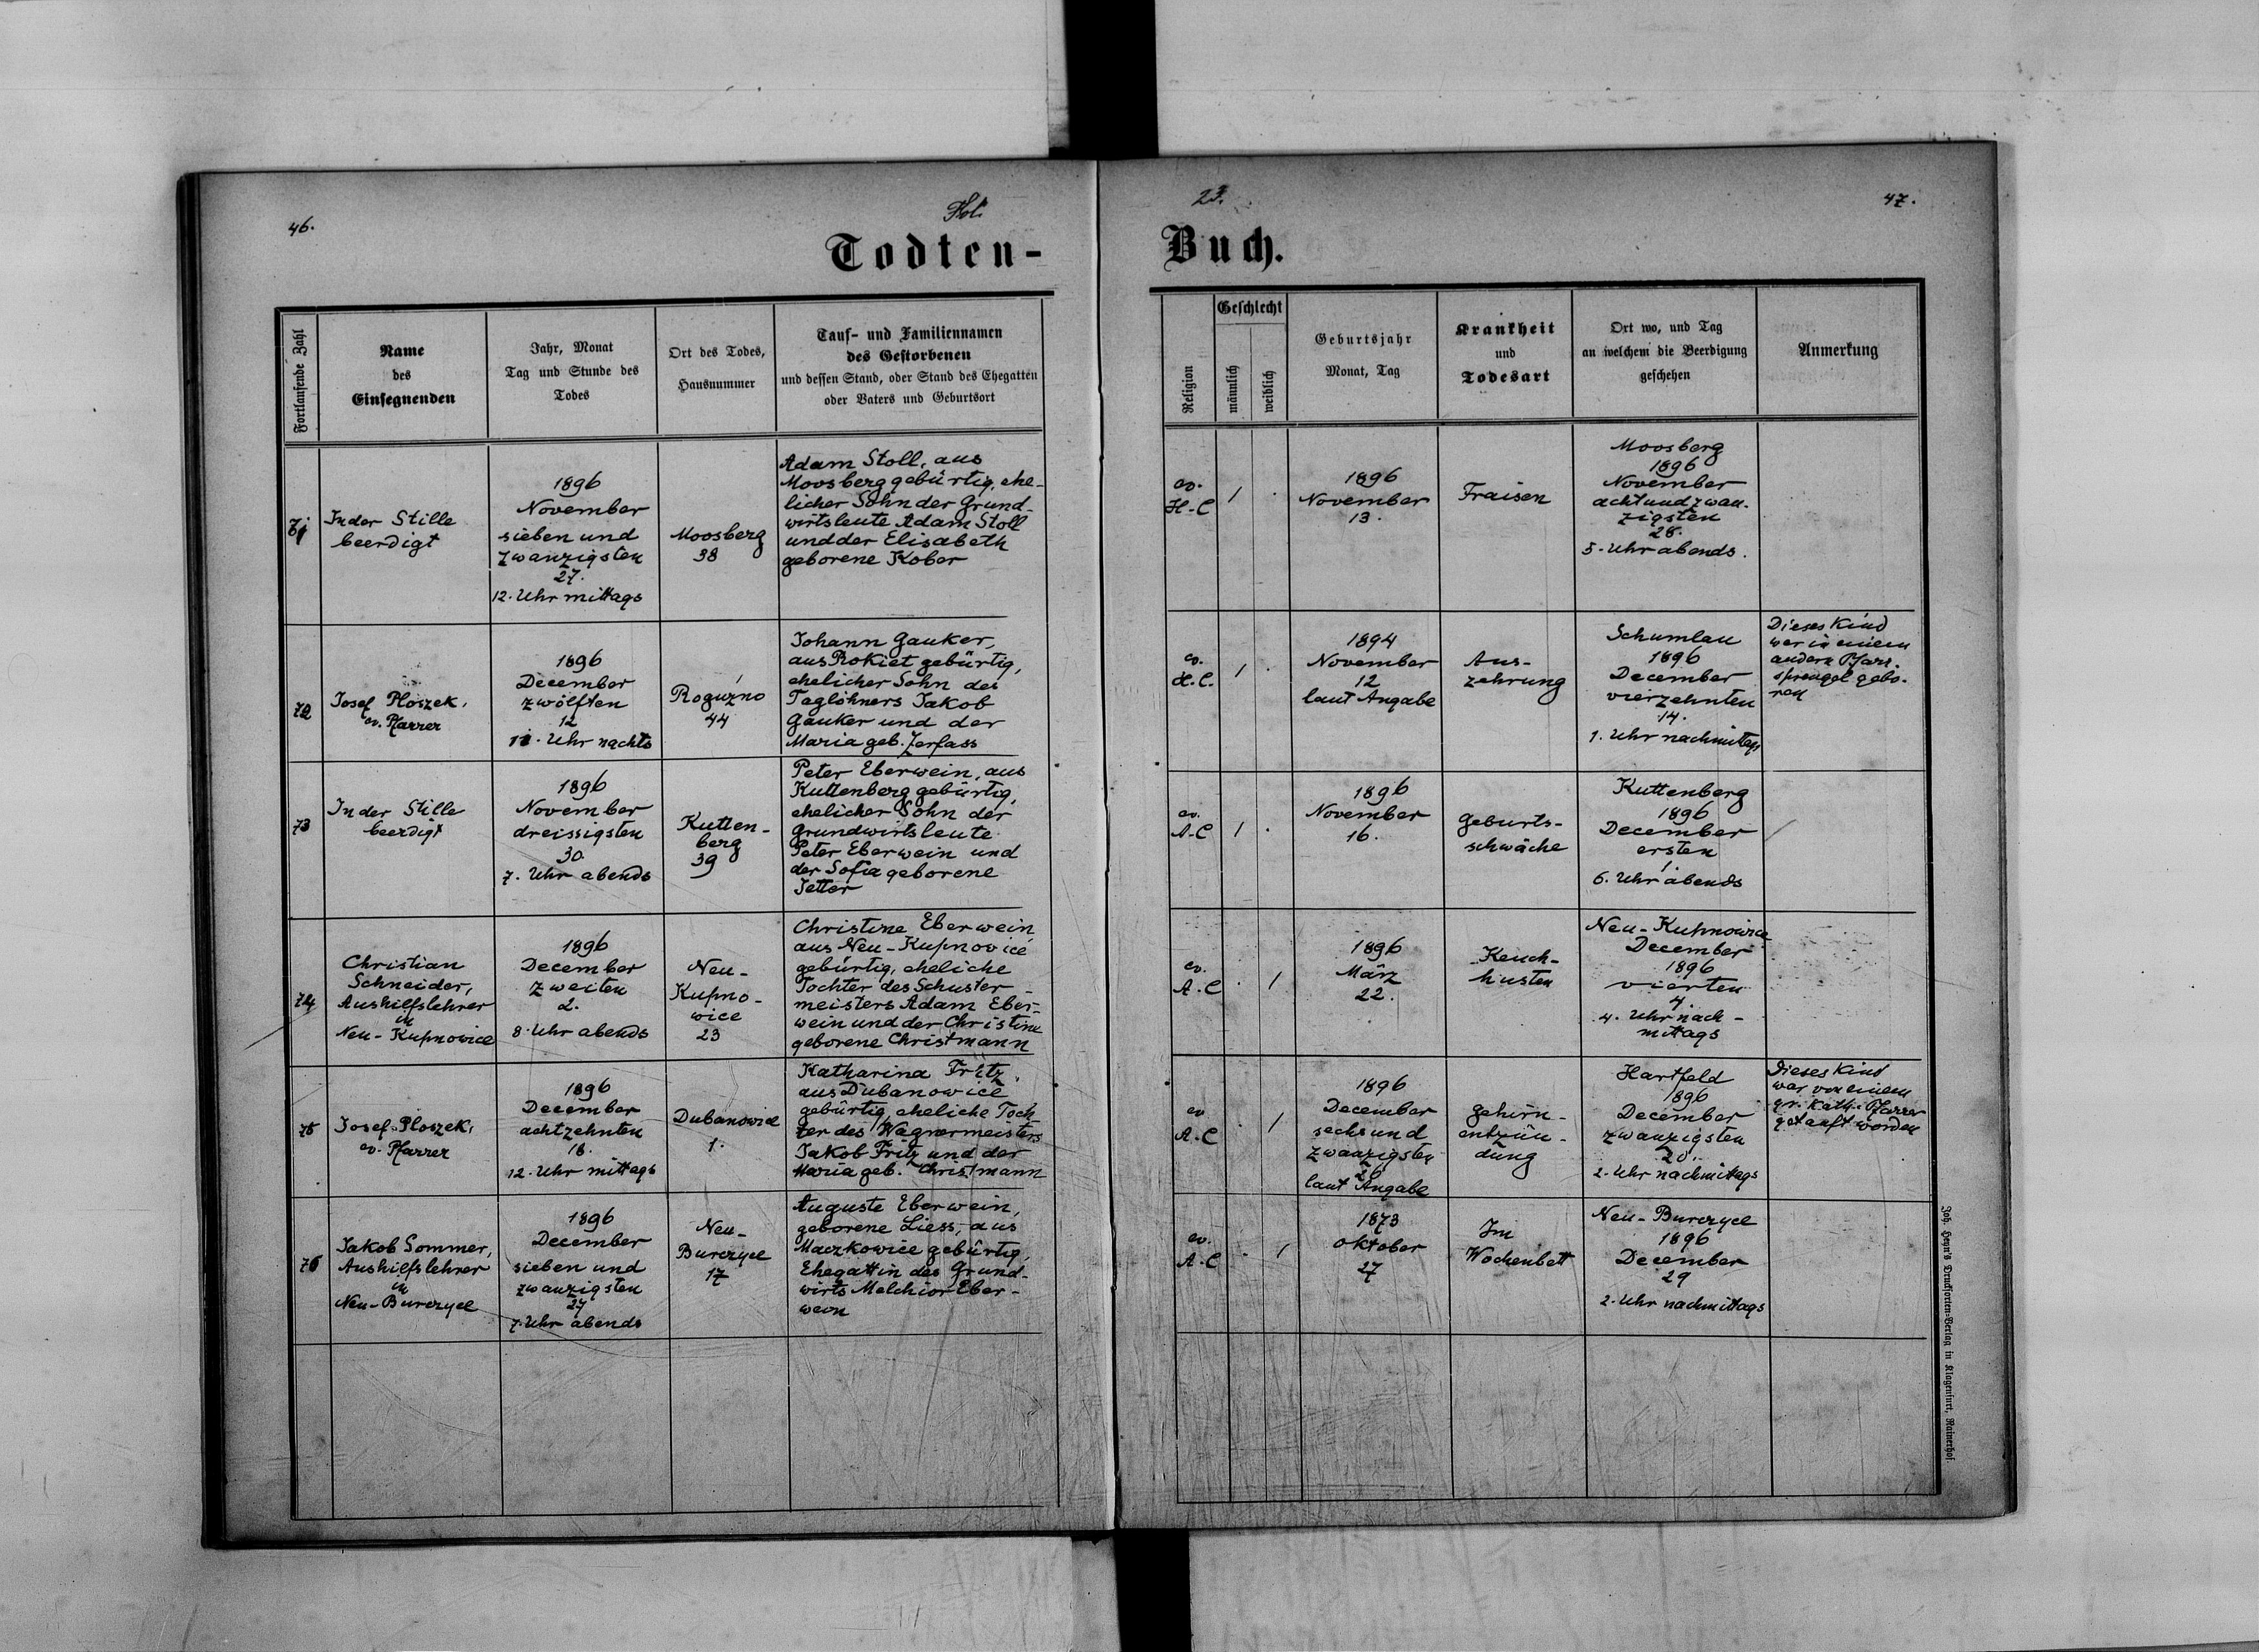 46.
Fol.
23.
47.
Todten-
Buch.
Fortlaufende Zahl
Name
des
Einsegnenden
Jahr, Monat
Tag und Stunde des
Todes
Ort des Todes,
Hausnummer
Tauf- und Familiennamen
des Gestorbenen
und dessen Stand, oder Stand des Ehegatten
oder Vaters und Geburtsort
Religion
Geschlecht
männlich
weiblich
Geburtsjahr
Monat, Tag
Krankheit
und
Todesart
Ort wo, und Tag
an welchem die Beerdigung
geschehen
Anmerkung
71
In der Stille
beerdigt
1896
November
sieben und
zwanzigsten
27.
12. Uhr mittags
Moosberg
38
Adam Stoll, aus
Moosberg gebürtig, ehe-
licher Sohn der Grund-
wirtsleute Adam Stoll
und der Elisabeth
geborene Kober
ev.
H.-C
1
.
1896
November
13.
Fraisen
Moosberg
1896
November
achtundzwan-
zigsten
28.
5. Uhr abends.
72
Josef Ploszek,
ev. Pfarrer
1896
December
zwölften
12
11. Uhr nachts
Roguźno
44
Johann Gauker,
aus Rokiet gebürtig,
ehelicher Sohn des
Taglöhners Jakob
Gauker und der
Maria geb. Zerfass
ev.
H.C.
1
.
1894
November
12
laut Angabe
Aus-
zehrung
Schumlau
1896
December
vierzehnten
14.
1. Uhr nachmittags
Dieses Kind
war in einem
andern Pfarr-
sprengel gebo-
ren
73
In der Stille
beerdigt
1896
November
dreissigsten
30.
7. Uhr abends
Kutten-
berg
39
Peter Eberwein, aus
Kuttenberg gebürtig,
ehelicher Sohn der
Grundwirtsleute
Peter Eberwein und
der Sofia geborene
Jetter
ev.
A.-C
1
.
1896
November
16.
Geburts-
schwäche
Kuttenberg
1896
December
ersten
1.
6. Uhr abends
74
Christian
Schneider,
Aushilfslehrer
in
Neu-Kupnowice
1896
December
zweiten
2.
8. Uhr abends
Neu-
Kupno-
wice
23
Christine Eberwein
aus Neu-Kupnowice
gebürtig, eheliche
Tochter des Schuster-
meisters Adam Eber-
wein und der Christine
geborene Christmann
ev.
A.-C
.
1
1896
März
22.
Keuch-
husten
Neu-Kupnowice
December
1896
vierten
4.
4. Uhr nach-
mittags
75
Josef Ploszek,
ev. Pfarrer
1896
December
achtzehnten
18.
12. Uhr mittags
Dubanowice
1.
Katharina Fritz,
aus Dubanowice
gebürtig, eheliche Toch-
ter des Wagnermeisters
Jakob Fritz und der
Maria geb. Christmann
ev
A.-C
.
1
1896
December
sechsund
zwanzigsten
26
laut Angabe
Gehirn-
entzün-
dung
Hartfeld
1896
December
zwanzigsten
20.
2. Uhr nachmittags
Dieses Kind
war von einem
gr. kath. Pfarrer
getauft worden
76
Jakob Sommer,
Aushilfslehrer
in
Neu-Burczyce
1896
December
sieben und
zwanzigsten
27
7. Uhr abends
Neu-
Burczyce
17
Auguste Eberwein,
geborene Liess, aus
Maczkowice gebürtig,
Ehegattin des Grund-
wirts Melchior Eber-
wein
ev.
A.-C
.
1
1873
Oktober
27
Im
Wochenbett
Neu-Burczyce
1896
December
29
2. Uhr nachmittags
Joh. Heyn's Drucksorten-Verlag in Klagenfurt, Rainerhof.